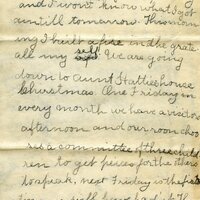 and I won't know what I got
until tomorrow. This morn
ing I built a fire in the grate
all my self. We are going
down to Aunt Hattie house
Christmas. One Friday in
every month we have a visitors
afternoon and our room choo
ses a committee of three child
ren to get pieces for the others
to speak, next Friday is the